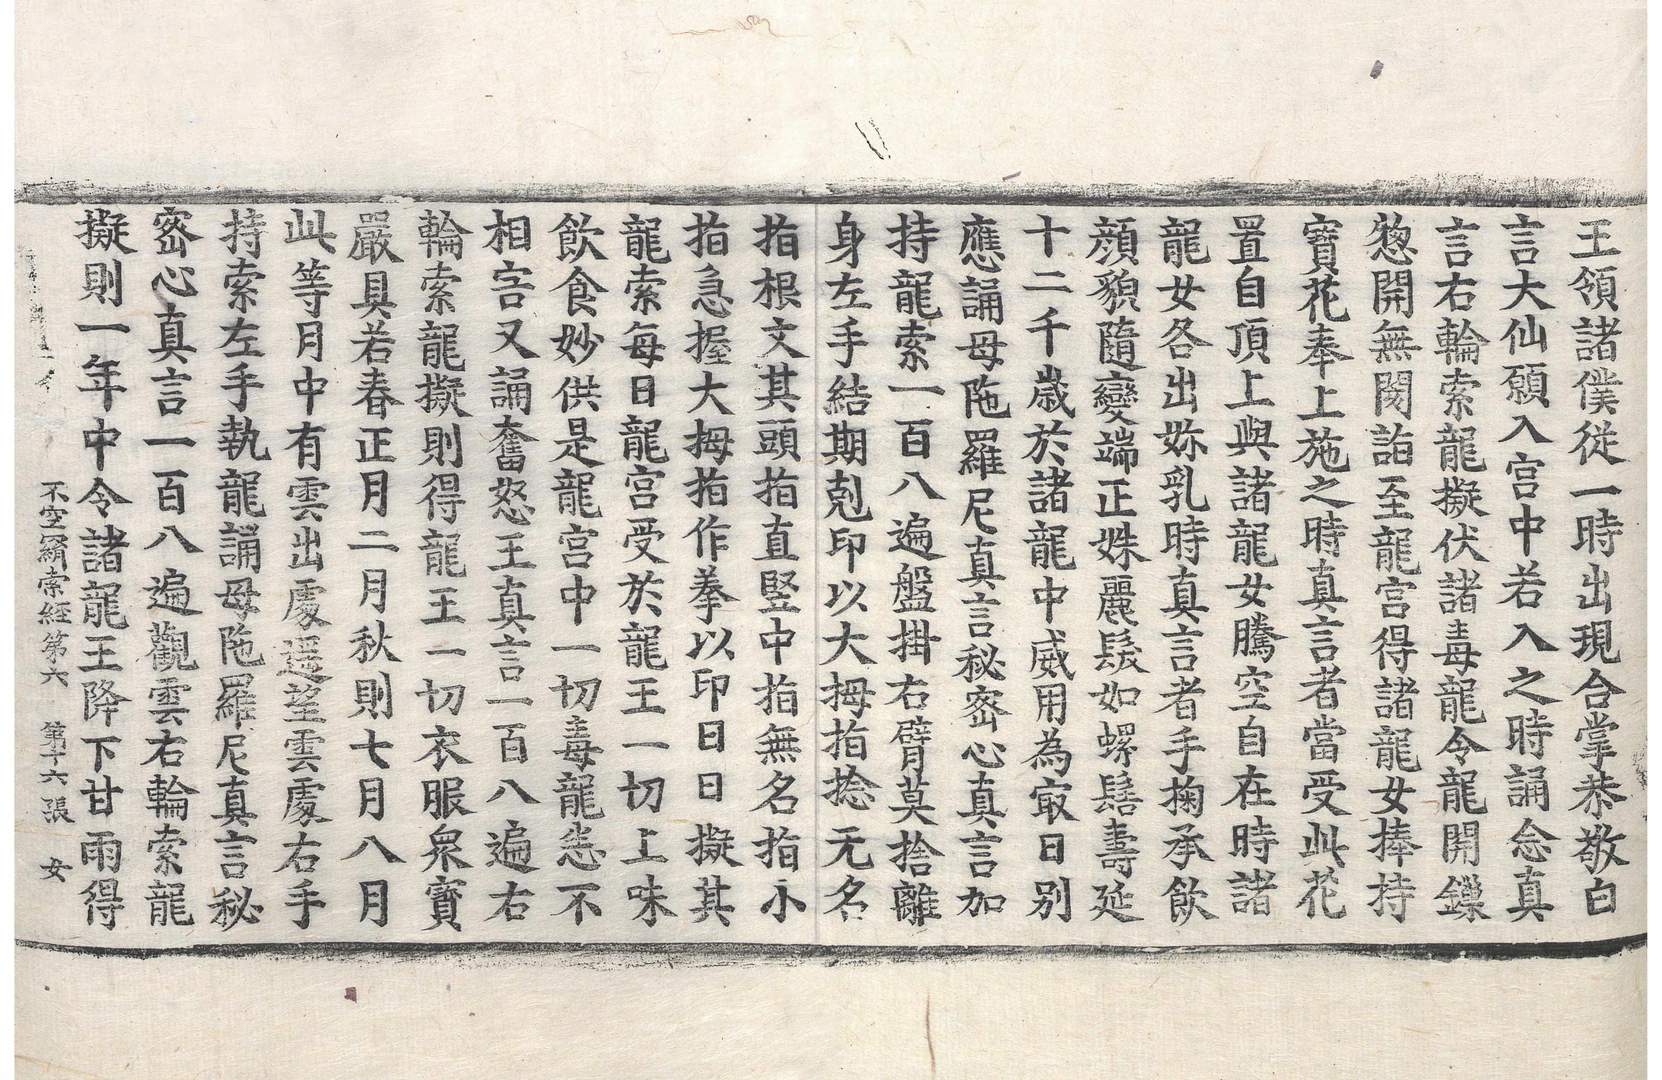 王領諸僕從一時出現合掌恭敬白
言大仙願入宮中若入之時誦念真
言右輪索龍擬伏諸毒龍令龍開鏁
惣開無閡詣至龍宮得諸龍女捧持
寶花奉上施之時真言者當受此花
置自頂上與諸龍女騰空自在時諸
龍女各出妳乳時真言者手掬承飲
顔貌隨變端正姝麗髮如螺髻壽延
十二千歲於諸龍中威用為㝡日别
應誦母陁羅尼真言秘密心真言加
持龍索一百八遍盤掛右臂莫捨離
身左手結期剋印以大拇指捻无名
指根文其頭指直竪中指無名指小
指急握大拇指作拳以印日日擬其
龍索每日龍宮受於龍王一切上味
飲食妙供是龍宮中一切毒龍悉不
相害又誦奮怒王真言一百八遍右
輪索龍擬則得龍王一切衣服衆寶
嚴具若春正月二月秋則七月八月
此等月中有雲出處遥望雲處右手
持索左手執龍誦母陁羅尼真言秘
密心真言一百八遍觀雲右輪索龍
擬則一年中令諸龍王降下甘雨得
不空羂索經第六 第十六張 女